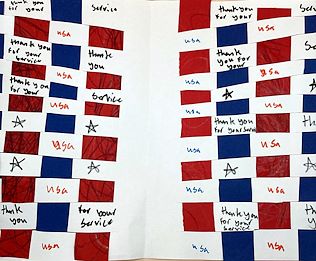 thank you
for your
service
usa
thank you
for your
service
thank
you
usa
thank you
for your
service
usa
usa
usa
thank
you
for your
service
usa
thank you
for your
usa
usa
thank
you
for your
usa
usa
thank you
for your
service
usa
usa
usa
usa
thank you
for your
service
usa
usa